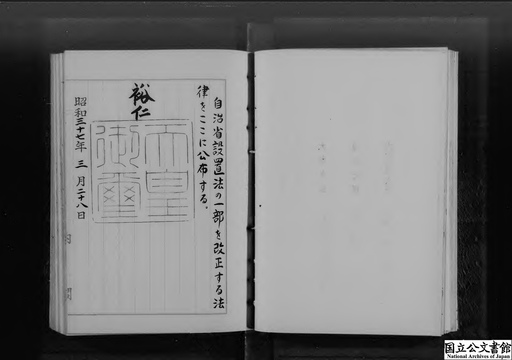 自治省設置法の一部を改正する法
律をここに公布する。
裕仁
天皇
御璽
昭和三十七年三月二十八日
国立公文書館
National Archives of Japan